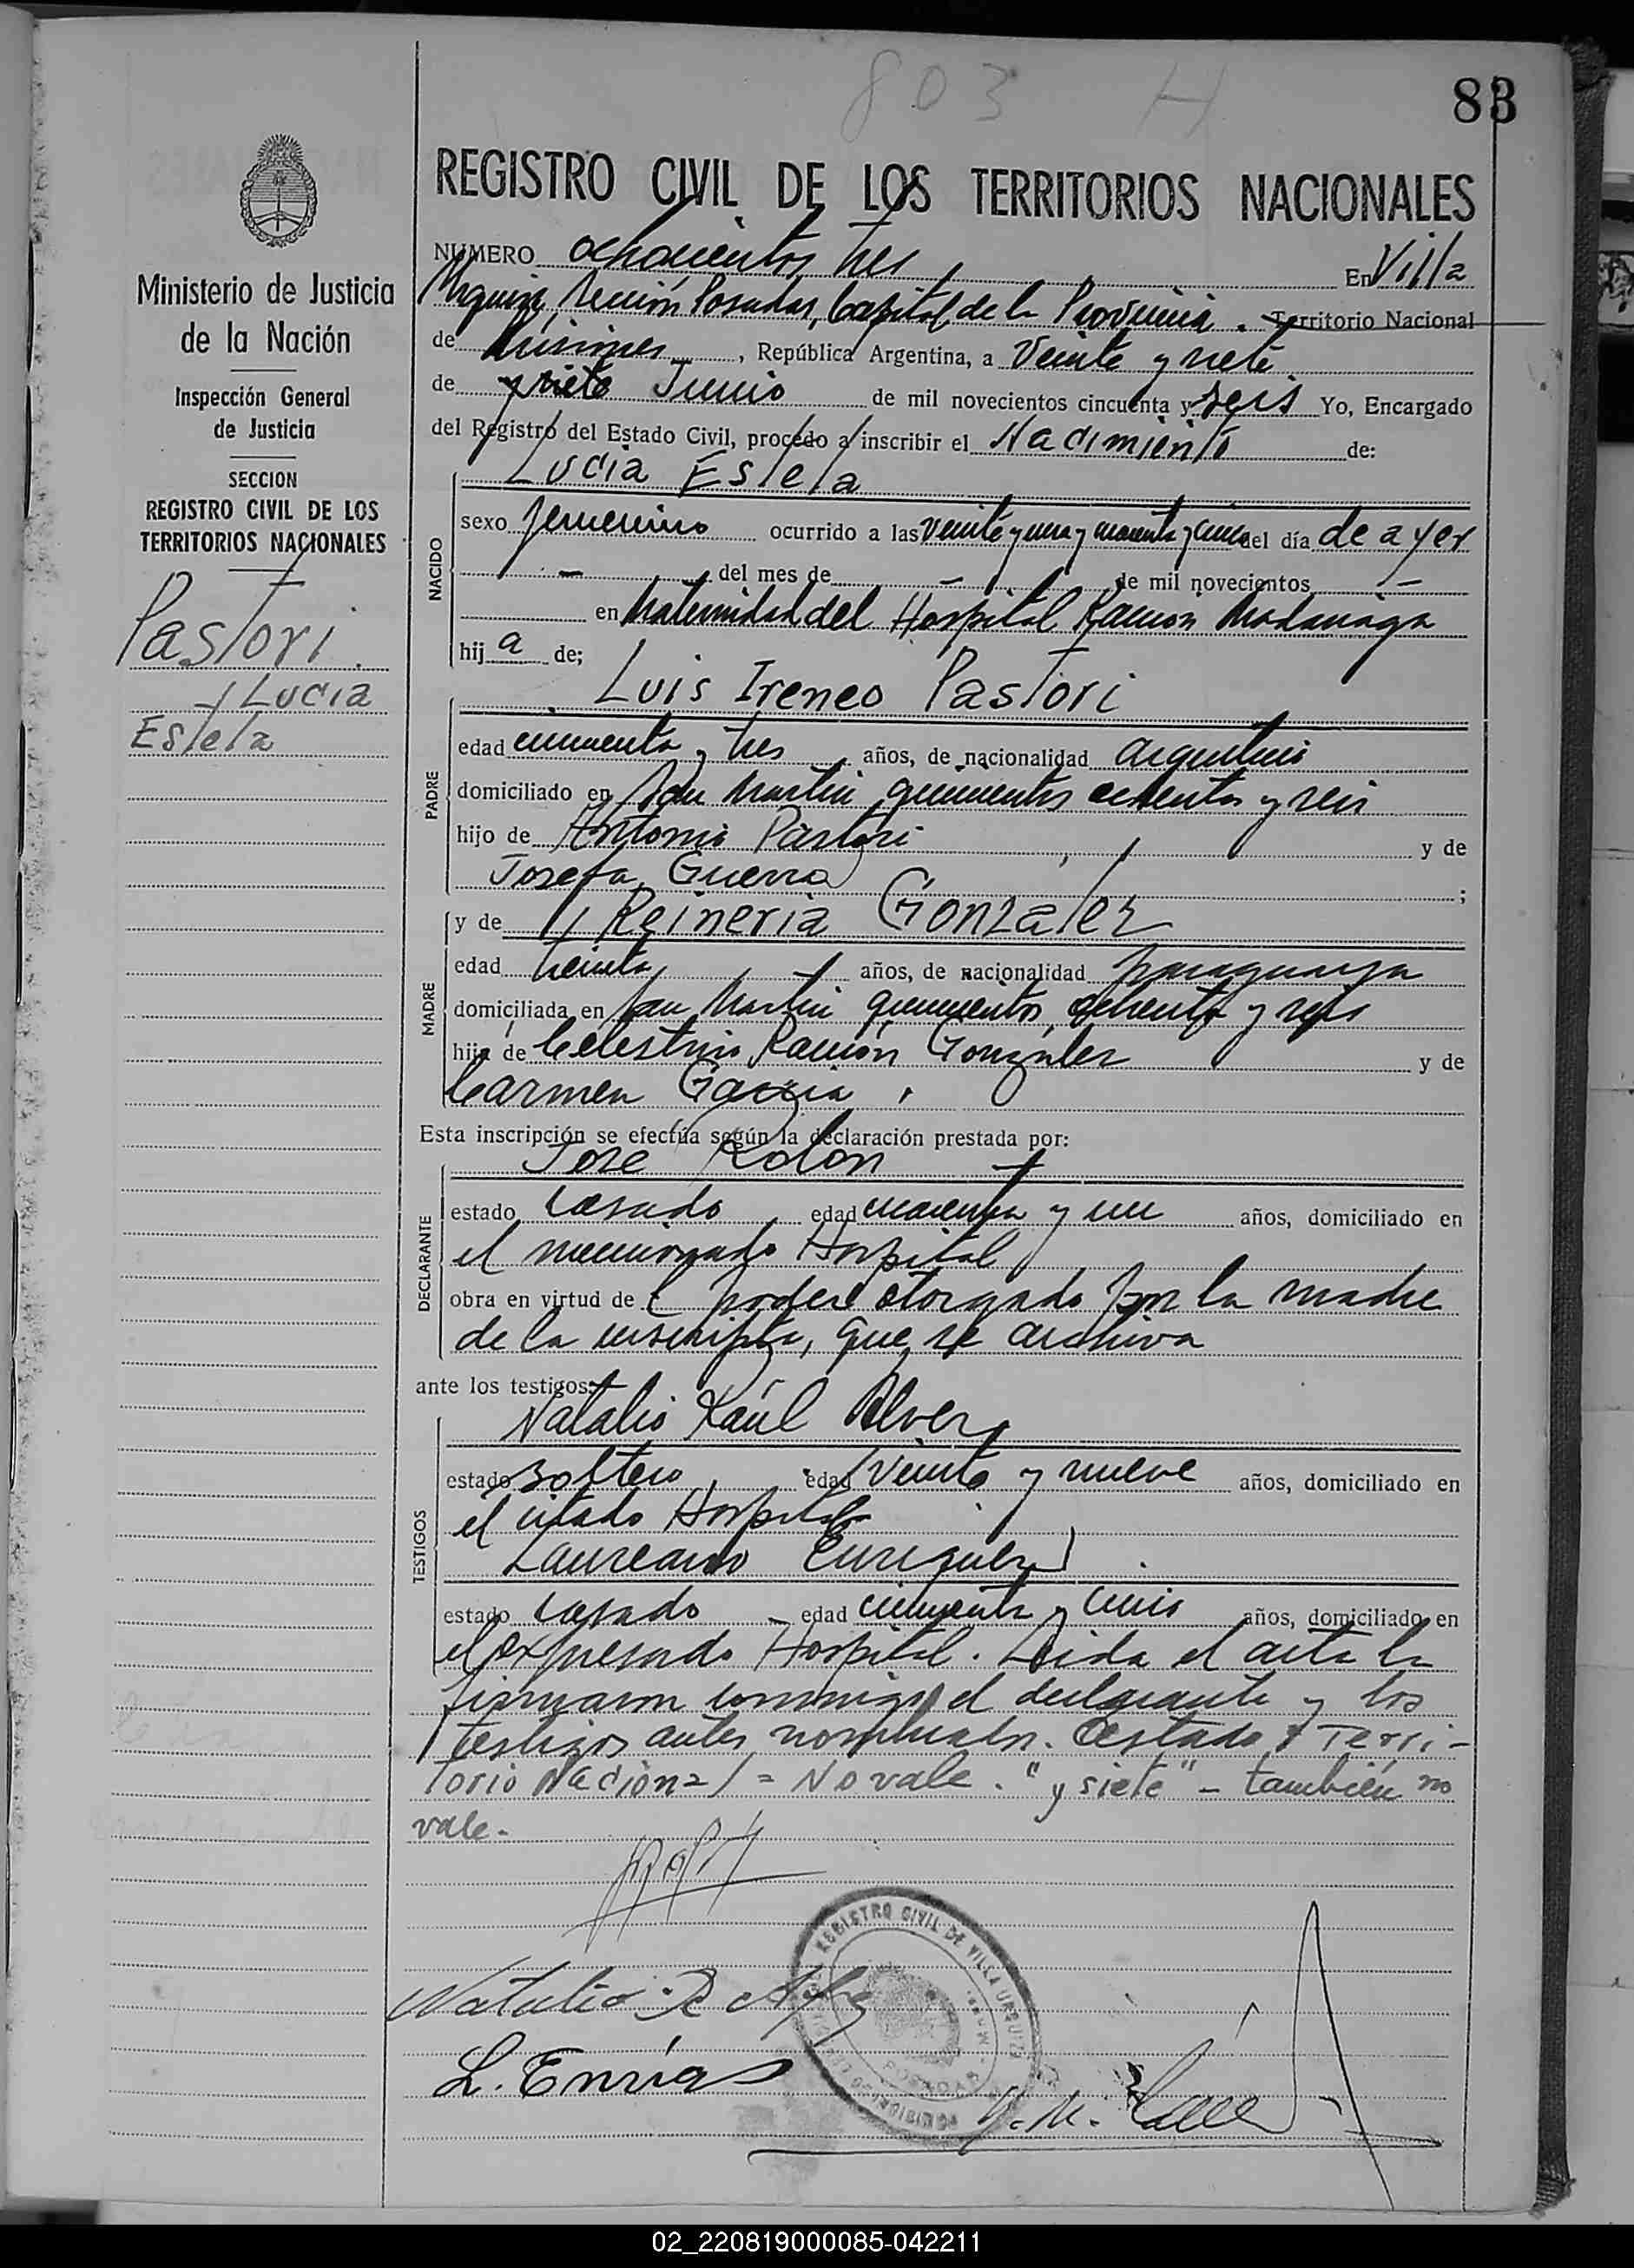 803 H
83
REGISTRO CIVIL DE LOS TERRITORIOS NACIONALES
Ministerio de Justicia
de la Nación
Inspección General
de Justicia
SECCION
REGISTRO CIVIL DE LOS
TERRITORIOS NACIONALES
Pastori
Lucia
Estela
NUMERO ochocientos tres En Villa
Urquiza, Sección Posadas, Capital de la Provincia. Territorio Nacional
de Misiones, República Argentina, a Veinte y siete
de y siete Junio de mil novecientos cincuenta y seis Yo, Encargado
del Registro del Estado Civil, procedo a inscribir el Nacimiento de:
NACIDO
Lucia Estela
sexo femenino ocurrido a las veinte y una y cuarenta y cinco del día de ayer
- del mes de - de mil novecientos -
en Maternidad del Hospital Ramón Madariaga
hij a de;
PADRE
Luis Ireneo Pastori
edad cincuenta y tres años, de nacionalidad argentino
domiciliado en San Martin quinientos ochenta y seis
hijo de Antonio Pastori y de
Josefa Guerra ;
MADRE
y de Reineria Gonzalez
edad treinta años, de nacionalidad paraguaya
domiciliada en San Martin quinientos ochenta y seis
hija de Celestino Ramón González y de
Carmen Garcia
Esta inscripción se efectúa según la declaración prestada por:
DECLARANTE
Jose Rolon
estado casado edad cuarenta y un años, domiciliado en
el mencionado Hospital
obra en virtud de l poder otorgado por la madre
de la inscripta, que se archiva
ante los testigos:
TESTIGOS
Natalio Raúl Alvez
estado soltero edad veinte y nueve años, domiciliado en
el citado Hospital
Laureano Enriquez
estado casado edad cincuenta y cinco años, domiciliado en
el expresado Hospital. Leida el acta la
firmaron conmigo el declarante y los
testigos antes nombrados. Testado: Terri-
torio Nacional = No vale. "y siete" - también no
vale.-
Natalio R
L. Enriq
REGISTRO CIVIL DE VILLA URQUIZA
POSADAS
02_220819000085-042211